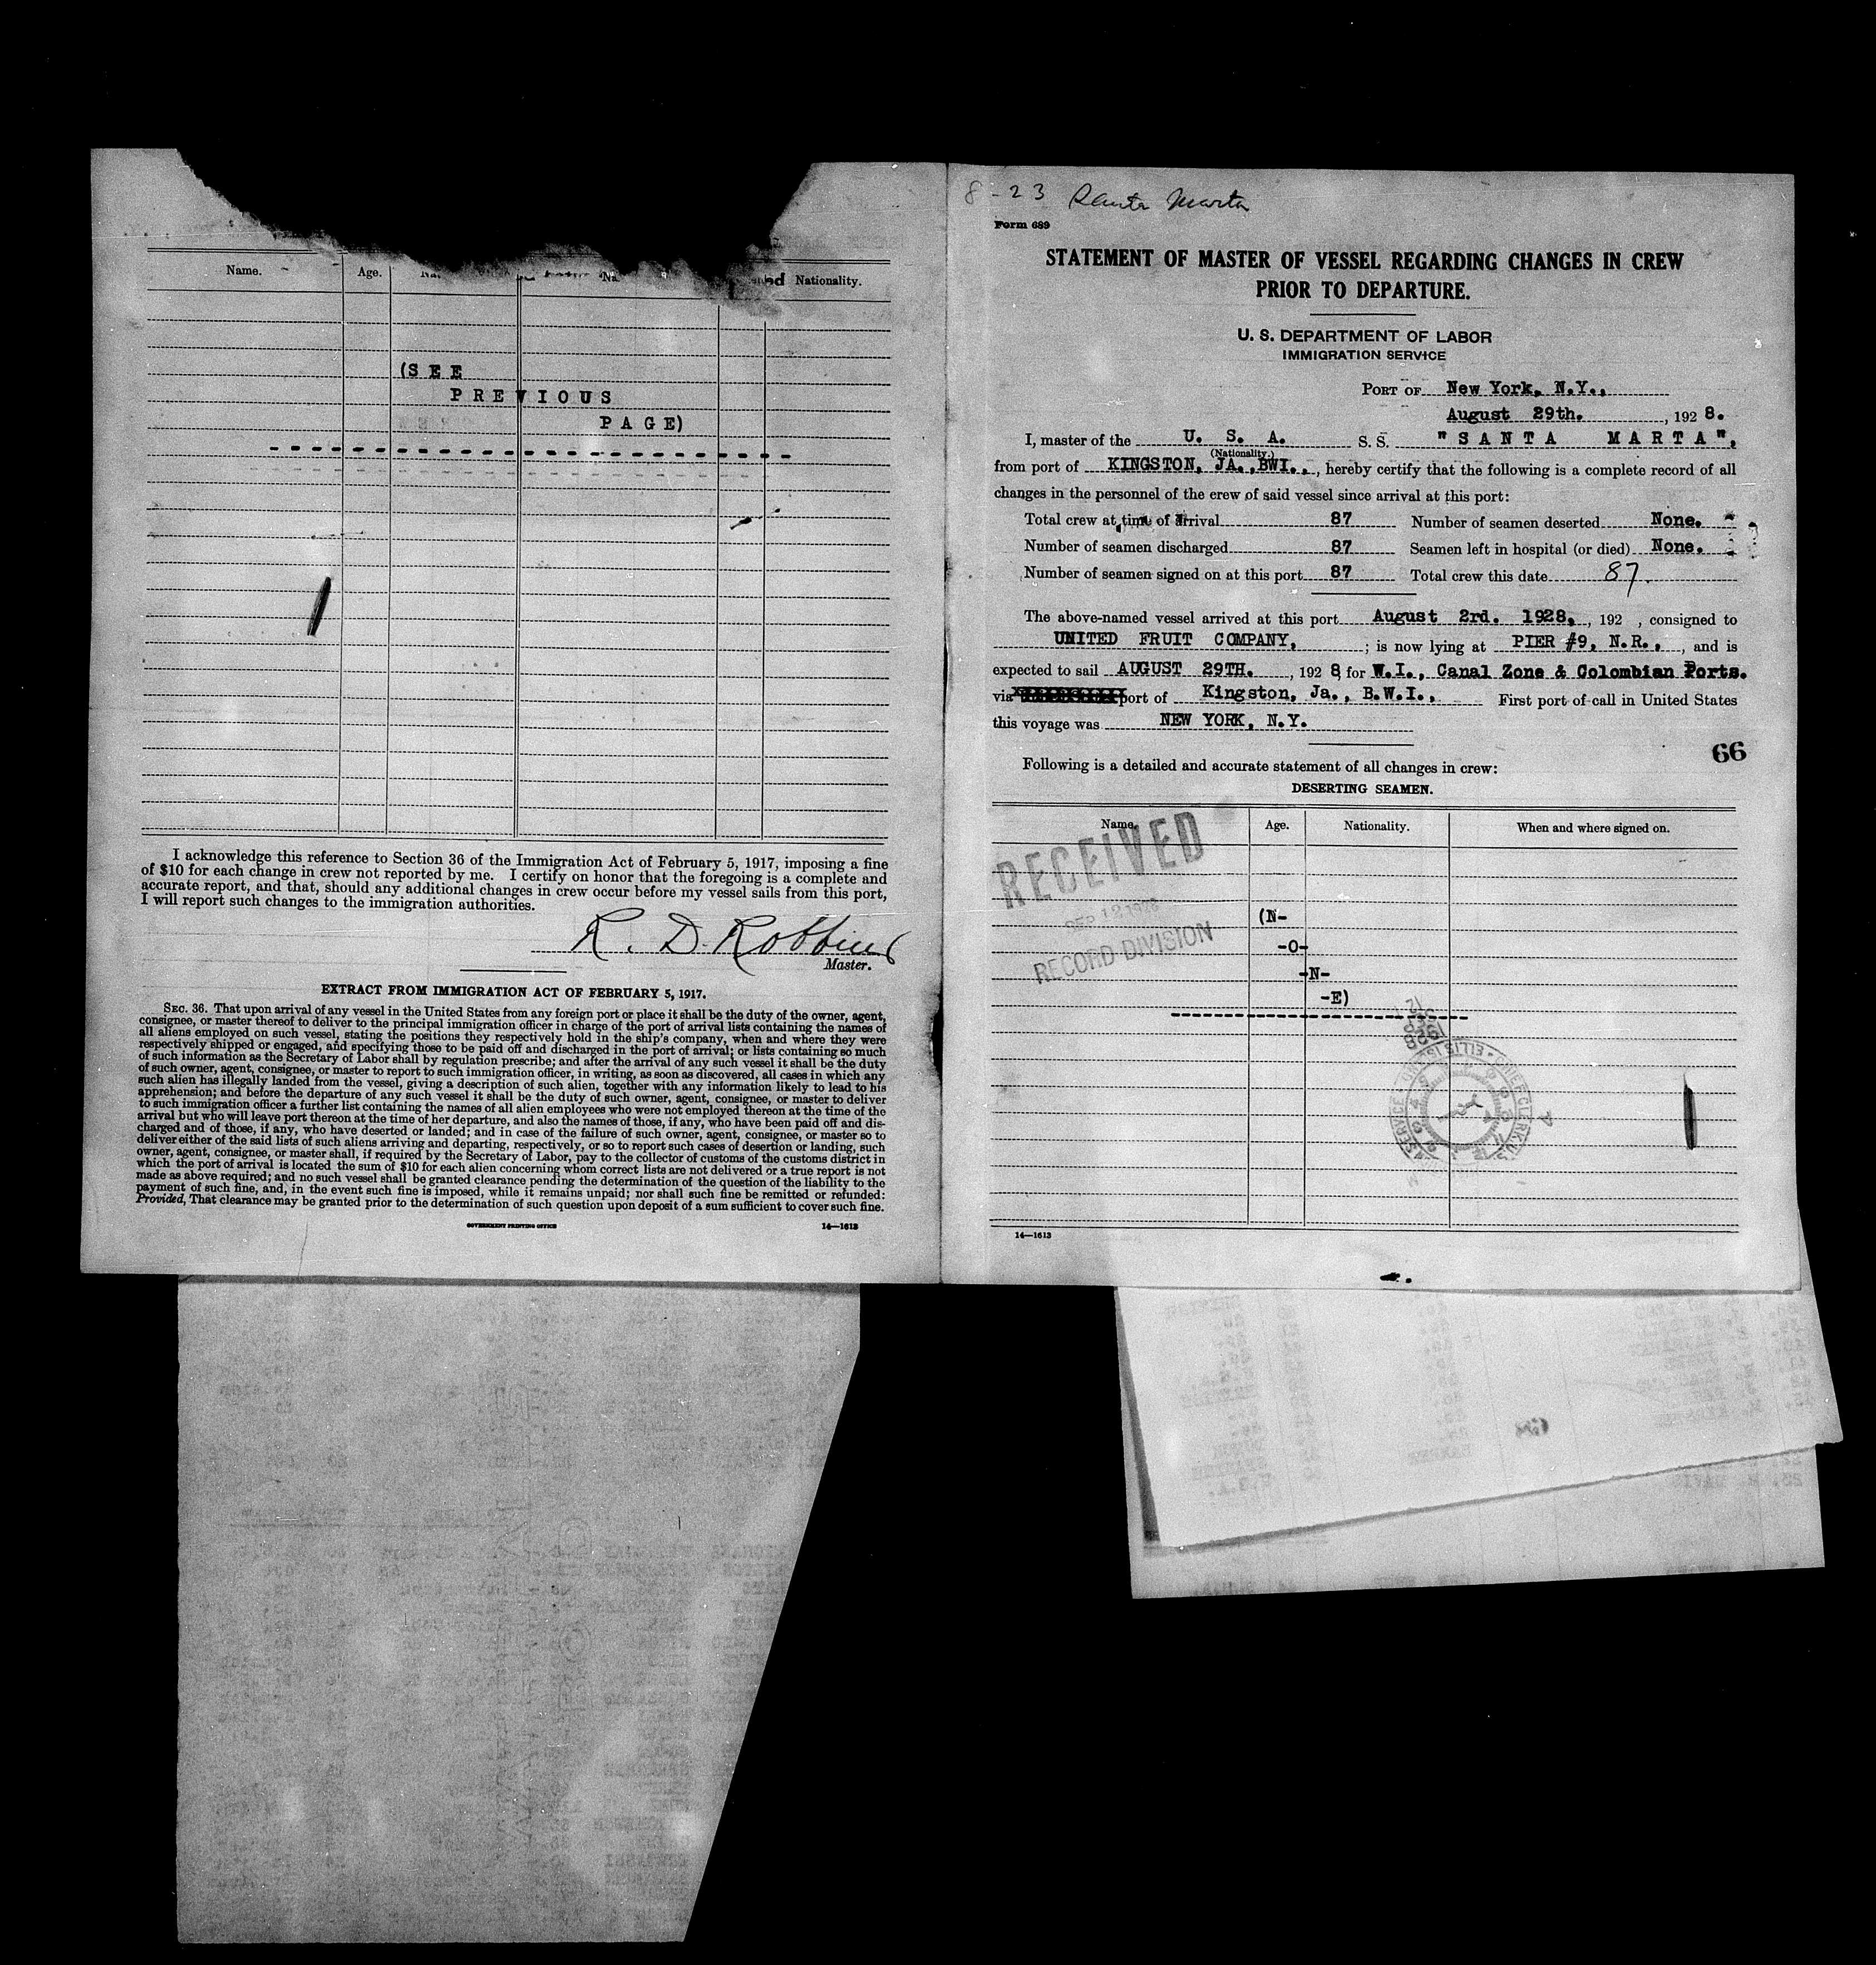 Name.
Age.
Nationality.
(S E E
P R E V I O U S
P A G E)
I acknowledge this reference to Section 36 of the Immigration Act of February 5, 1917, imposing a fine
of $10 for each change in crew not reported by me. I certify on honor that the foregoing is a complete and
accurate report, and that, should any additional changes in crew occur before my vessel sails from this port,
I will report such changes to the immigration authorities.
R. D. Robbins
Master.
EXTRACT FROM IMMIGRATION ACT OF FEBRUARY 5, 1917.
SEC. 36. That upon arrival of any vessel in the United States from any foreign port or place it shall be the duty of the owner, agent,
consignee, or master thereof to deliver to the principal immigration officer in charge of the port of arrival lists containing the names of
all aliens employed on such vessel, stating the positions they respectively hold in the ship's company, when and where they were
respectively shipped or engaged, and specifying those to be paid off and discharged in the port of arrival; or lists containing so much
of such information as the Secretary of Labor shall by regulation prescribe; and after the arrival of any such vessel it shall be the duty
of such owner, agent, consignee, or master to report to such immigration officer, in writing, as soon as discovered, all cases in which any
such alien has illegally landed from the vessel, giving a description of such alien, together with any information likely to lead to his
apprehension; and before the departure of any such vessel it shall be the duty of such owner, agent, consignee, or master to deliver
to such immigration officer a further list containing the names of all alien employees who were not employed thereon at the time of the
arrival but who will leave port thereon at the time of her departure, and also the names of those, if any, who have been paid off and dis-
charged and of those, if any, who have deserted or landed; and in case of the failure of such owner, agent, consignee, or master so to
deliver either of the said lists of such aliens arriving and departing, respectively, or so to report such cases of desertion or landing, such
owner, agent, consignee, or master shall, if required by the Secretary of Labor, pay to the collector of customs of the customs district in
which the port of arrival is located the sum of $10 for each alien concerning whom correct lists are not delivered or a true report is not
made as above required; and no such vessel shall be granted clearance pending the determination of the question of the liability to the
payment of such fine, and, in the event such fine is imposed, while it remains unpaid; nor shall such fine be remitted or refunded:
Provided, That clearance may be granted prior to the determination of such question upon deposit of a sum sufficient to cover such fine.
GOVERNMENT PRINTING OFFICE 14—1613
8-23 Santa Marta
Form 689
STATEMENT OF MASTER OF VESSEL REGARDING CHANGES IN CREW
PRIOR TO DEPARTURE.
U. S. DEPARTMENT OF LABOR
IMMIGRATION SERVICE
PORT OF New York, N.Y.,
August 29th. , 192 8.
I, master of the U. S. A. S. S. "S A N T A M A R T A",
(Nationality.)
from port of KINGSTON, JA.,BWI., , hereby certify that the following is a complete record of all
changes in the personnel of the crew of said vessel since arrival at this port:
Total crew at time of arrival 87 Number of seamen deserted None.
Number of seamen discharged 87 Seamen left in hospital (or died) None.
Number of seamen signed on at this port 87 Total crew this date 87.
The above-named vessel arrived at this port August 2rd. 1928, , 192 , consigned to
UNITED FRUIT COMPANY, ; is now lying at PIER #9, N.R., , and is
expected to sail AUGUST 29TH. , 192 8, for W.I., Canal Zone & Colombian Ports.
via port of Kingston, Ja., B.W.I., First port of call in United States
this voyage was NEW YORK, N.Y.
66
Following is a detailed and accurate statement of all changes in crew:
DESERTING SEAMEN.
Name. Age. Nationality. When and where signed on.
RECEIVED
SEP 12 1928
RECORD DIVISION
(N-
-O-
-N-
-E)
14—1613